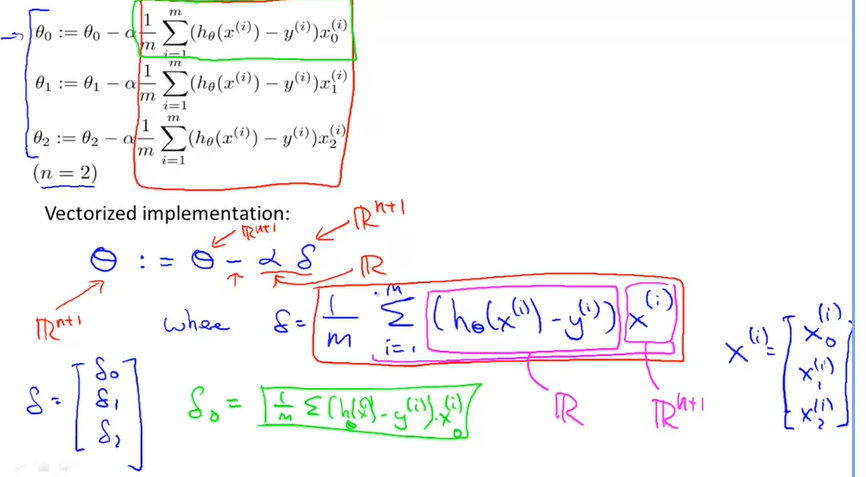 θ₀ := θ₀ − α 1/m ∑_{i=1}^{m} (h_θ(x^{(i)}) − y^{(i)})x_0^{(i)}
θ₁ := θ₁ − α 1/m ∑_{i=1}^{m} (h_θ(x^{(i)}) − y^{(i)})x_1^{(i)}
θ₂ := θ₂ − α 1/m ∑_{i=1}^{m} (h_θ(x^{(i)}) − y^{(i)})x_2^{(i)}
(n = 2)
Vectorized implementation:
ℝ^{n+1} ℝ^{n+1}
θ := θ − α δ
ℝ
ℝ^{n+1}
where δ = 1/m ∑_{i=1}^{m} (h_θ(x^{(i)}) − y^{(i)}) x^{(i)}
x^{(i)} = [x_0^{(i)} x_1^{(i)} x_2^{(i)}]
δ = [δ₀ δ₁ δ₂]
δ₀ = 1/m ∑ (h_θ(x^{(i)}) − y^{(i)}) · x_0^{(i)}
ℝ ℝ^{n+1}